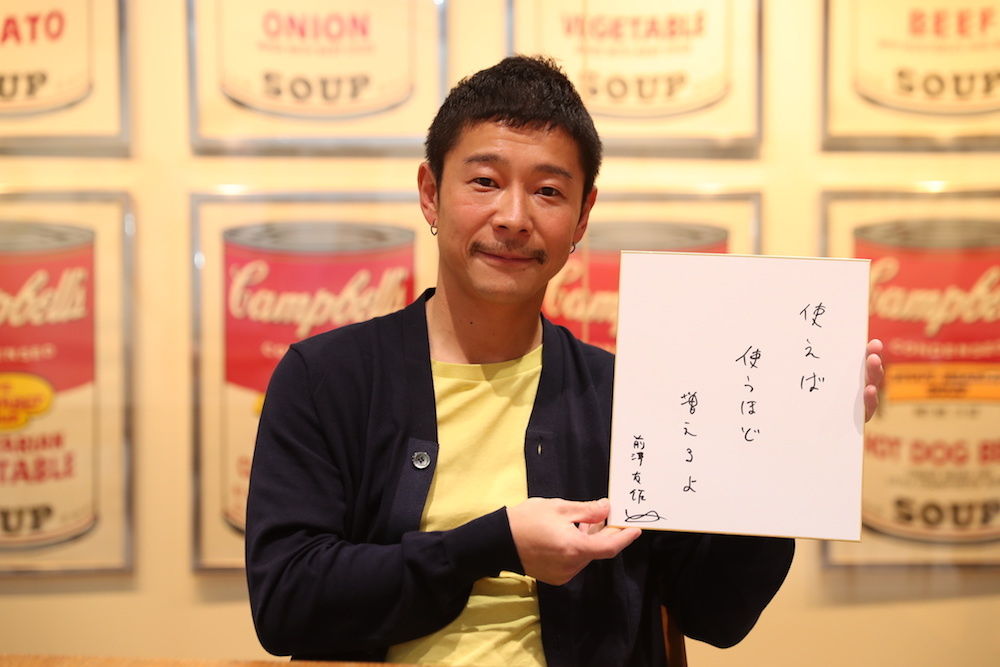 ATO
SOUP
ONION
SOUP
VEGETABLE
SOUP
BEEF
SOUP
Campbell's
CONDENSED
VEGETABLE
SOUP
Campbell's
Campbell's
CONDENSED
HOT DOG BE
SOUP
使えば
使うほど
増えるよ
前澤友作